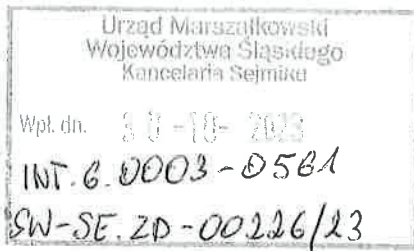 Urząd Marszałkowski
Województwa Śląskiego
Kancelaria Sejmiku
Wpł. dn. 30 -10- 2023
INT.6.0003-0561
SW-SE.ZD-00226/23